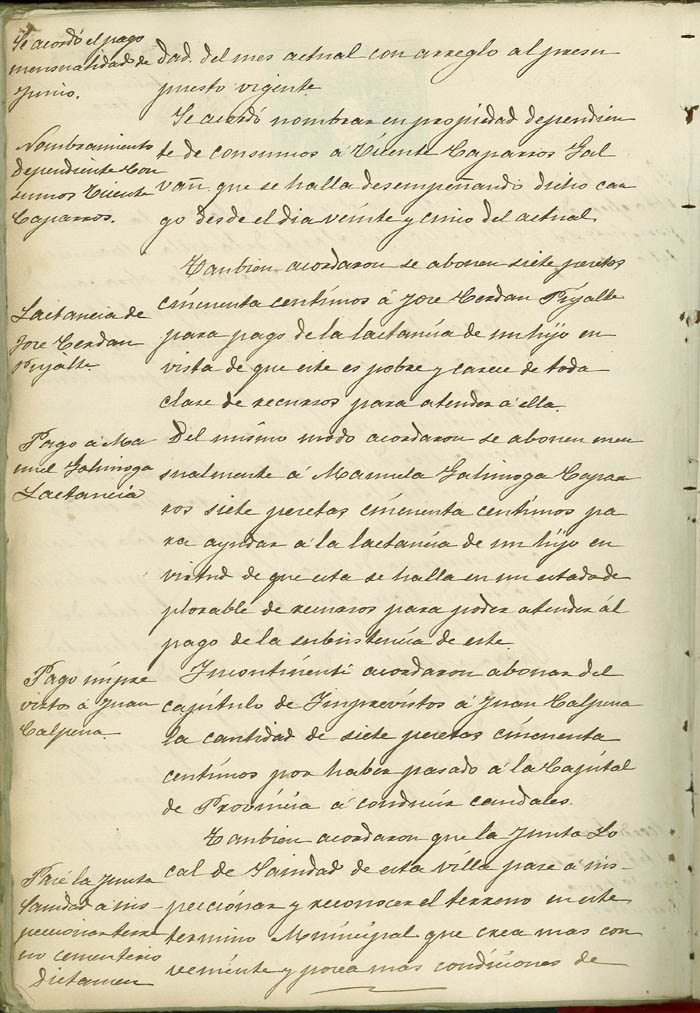 Se acordó el pago
mensualidad de
Junio.
dad. del mes actual con arreglo al presu
puesto vigente
Nombramiento
dependiente Con
sumos Vicente
Caparros.
Se acordó nombrar en propiedad dependien
te de consumos á Vicente Caparros Gal
vañ que se halla desempeñando dicho car
go desde el dia veinte y cinco del actual
Lactancia de
Jose Cerdan
Pujalte
Tanbien acordaron se abonen siete pesetas
cincuenta centimos á Jose Cerdan Pujalte
para pago de la lactancia de un hijo en
vista de que este es pobre y carece de toda
clase de recursos para atender á ella.
Pago á Ma
nuel
Lactancia
Del mismo modo acordaron se abonen men
sualmente á Manuela Capar
ros siete pesetas cincuenta centimos pa
ra ayudar á la lactancia de un hijo en
virtud de que esta se halla en un estado de
plorable de recursos para poder atender al
pago de la subsistencia de este.
Pago impre
vistos á Juan
Calpena.
Incontinenti acordaron abonar del
capítulo de Imprevistos á Juan Calpena
la cantidad de siete pesetas cincuenta
centimos por haber pasado á la Capital
de Provincia á conducir caudales.
Pase la Junta
Sanidad á ins-
peccionar terre
no cementerio
Dictamen
Tanbien acordaron que la Junta Lo
cal de Sanidad de esta villa pase á ins-
peccionar y reconocer el terreno en este
termino Municipal que crea mas con
veniente y posea mas condiciones de